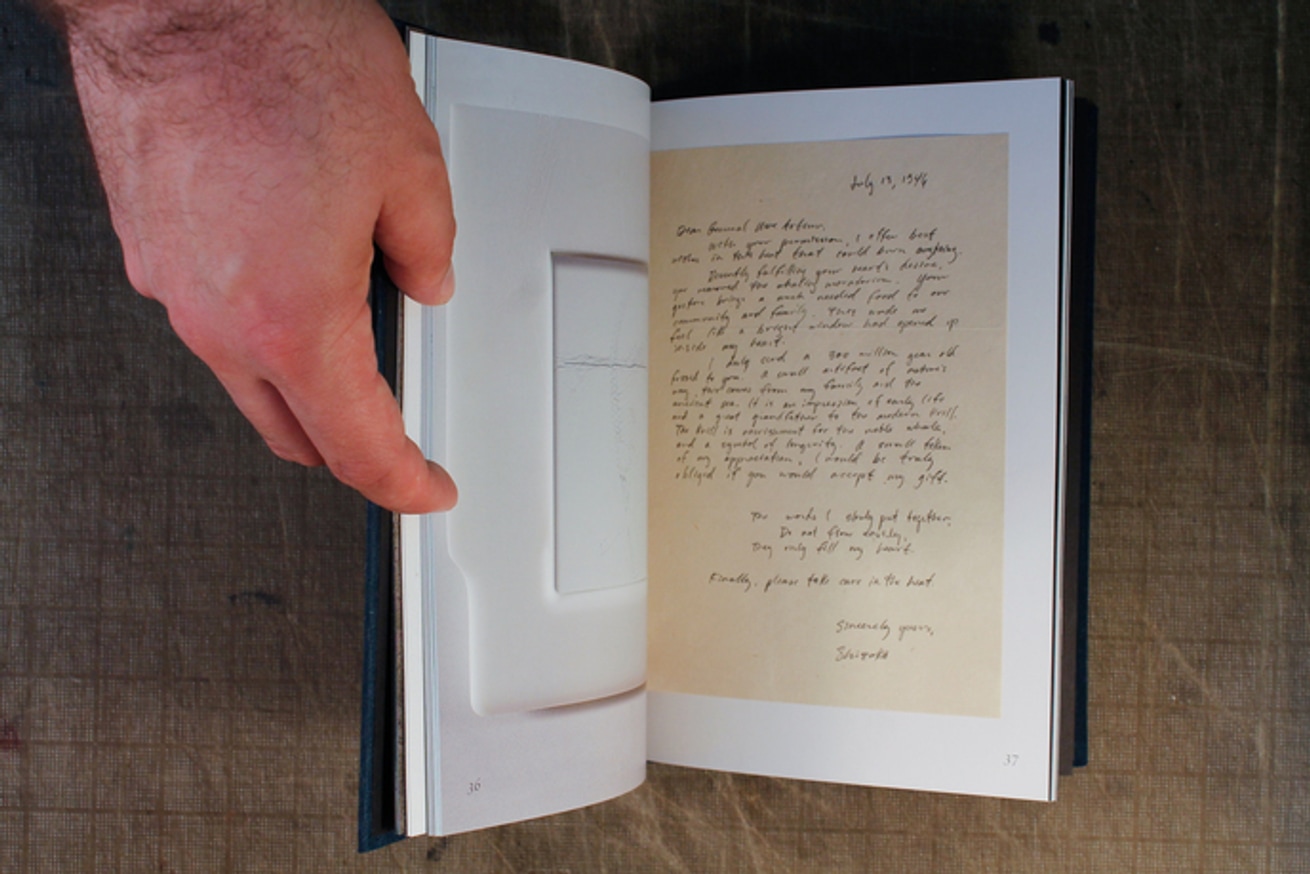 July 13, 1946
Dear General Mac Arthur,
With your permission, I offer best
wishes in this heat that could burn anything.
Recently fulfilling your heart's desire,
you removed the whaling moratorium. Your
gesture brings a much needed food to our
community and family. These words we
feel like a bright window had opened up
inside my heart.
I only send a 300 million year old
friend to you. A small artifact of nature's
way, this comes from my family and the
ancient sea. It is an impression of early life
and a great grandfather to the modern Krill.
The Krill is nourishment for the noble whale,
and a symbol of longevity. A small token
of my appreciation, I would be truly
obliged if you would accept my gift.
The words I slowly put together,
Do not flow easily,
They only fill my heart.
Finally, please take care in the heat.
Sincerely yours,
36
37